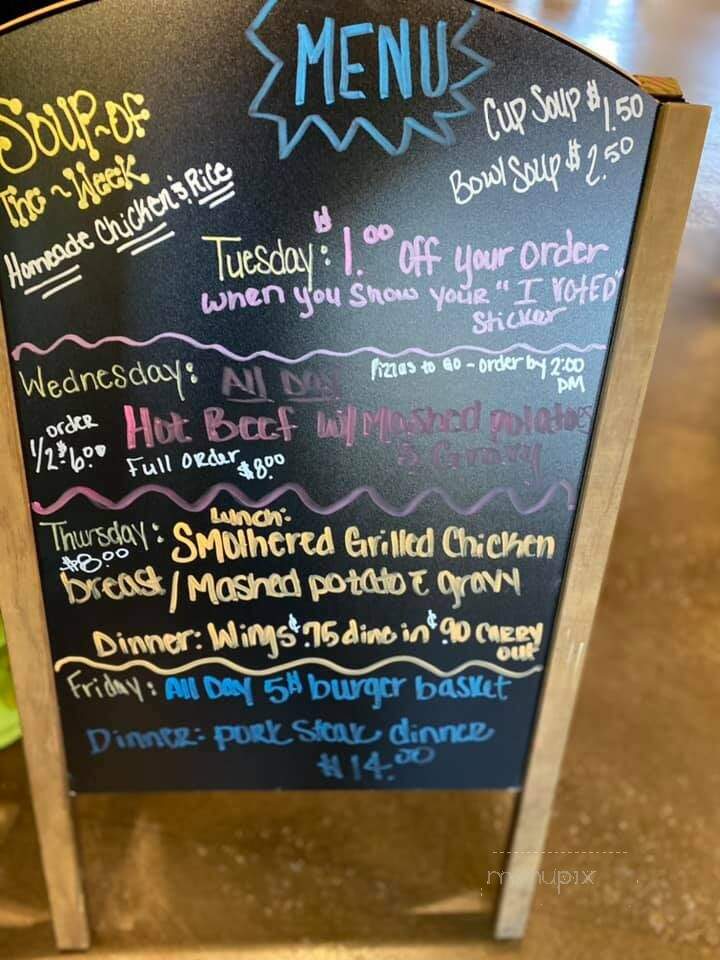 MENU
Soup-of
The ~ Week
Homeade Chicken & Rice
Cup Soup $1.50
Bowl Soup $2.50
Tuesday: $1.00 Off your order
when you Show your "I VOTED"
Sticker
Wednesday: All Day
Pizzas to Go - order by 2:00
PM
1/2 order $6.00
Hot Beef w/ Mashed potatoes
& Gravy
Full ORder $8.00
Thursday: Lunch:
$8.00
Smothered Grilled Chicken
breast / Mashed potato & gravy
Dinner: Wings $.75 dine in $.90 CARRY
out
Friday: All Day 5$ burger basket
Dinner: pork Steak dinner
$14.00
menupix